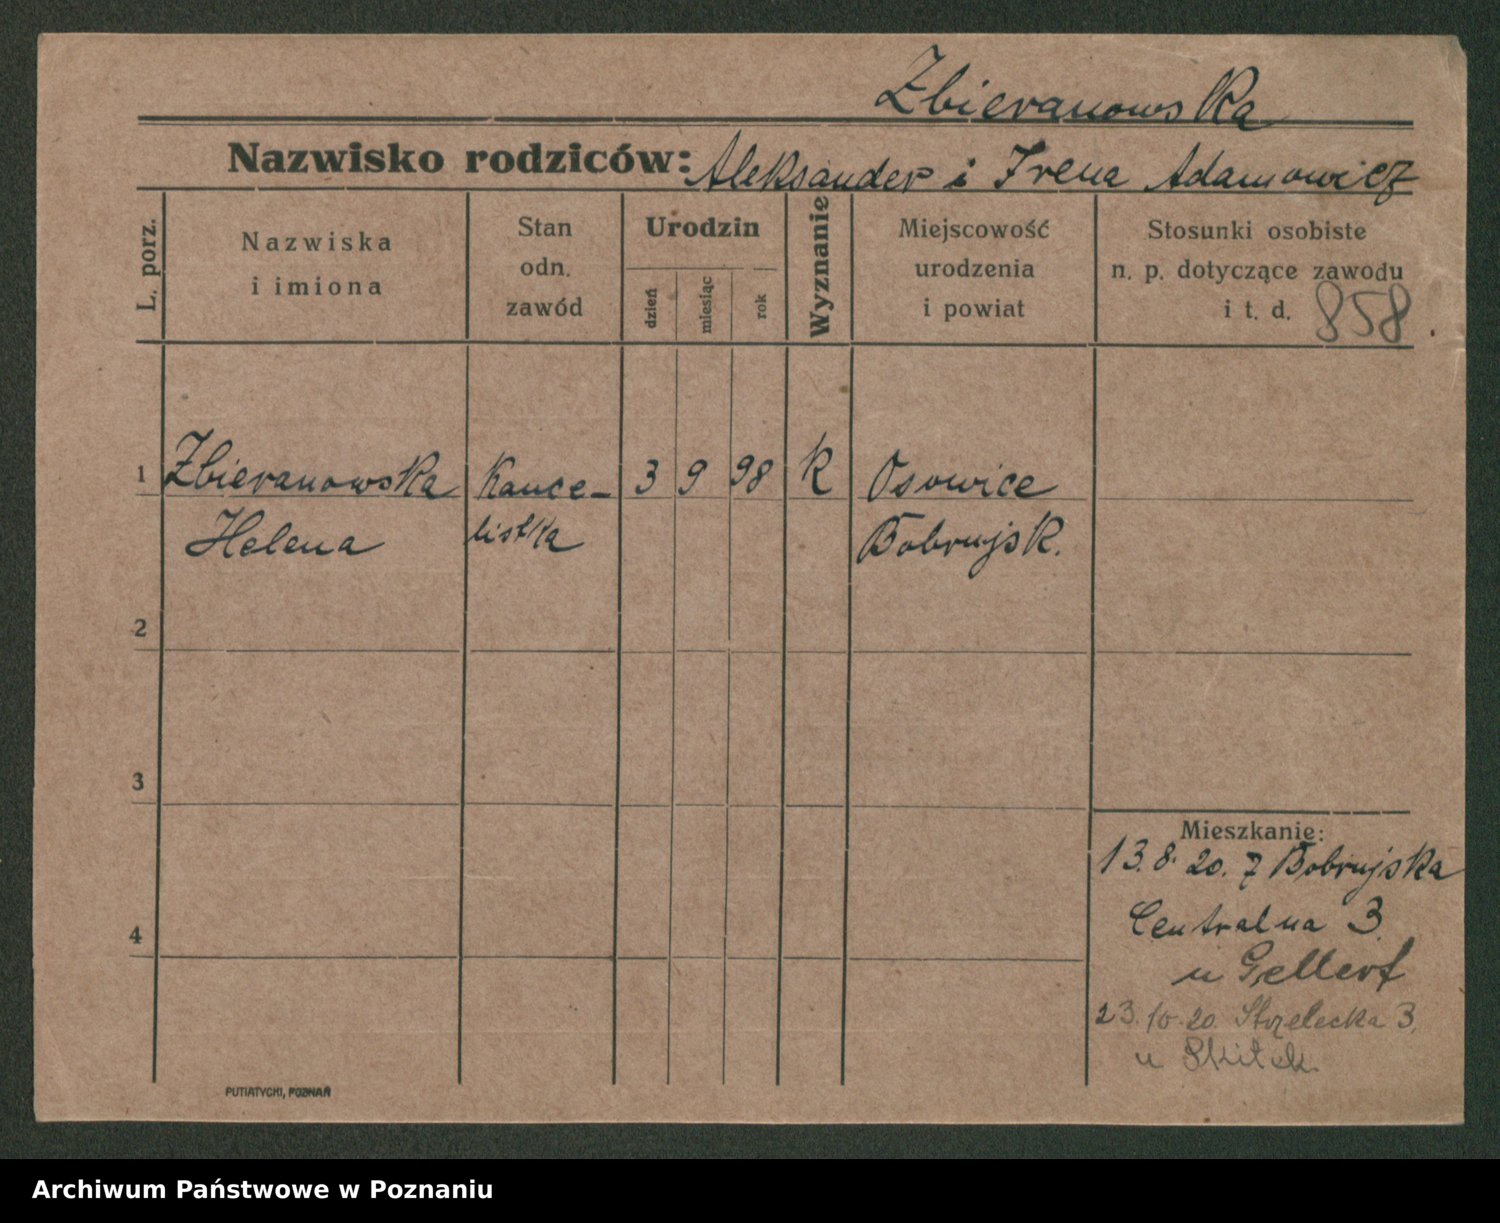 Zbieranowska
Nazwisko rodziców: Aleksander i Irena Adamowicz
L. porz.
Nazwiska
i imiona
Stan
odn.
zawód
Urodzin
dzień
miesiąc
rok
Wyznanie
Miejscowość
urodzenia
i powiat
Stosunki osobiste
n. p. dotyczące zawodu
i t. d.
858.
1 Zbieranowska Kance- 3 9 98 k Osowice
Helena listka Bobrujsk.
2
3
4
Mieszkanie:
13.8.20. z Bobrujska
Centralna 3
u Gellert
23.10.20. Strzelecka 3,
u
PUTIATYCKI, POZNAŃ
Archiwum Państwowe w Poznaniu